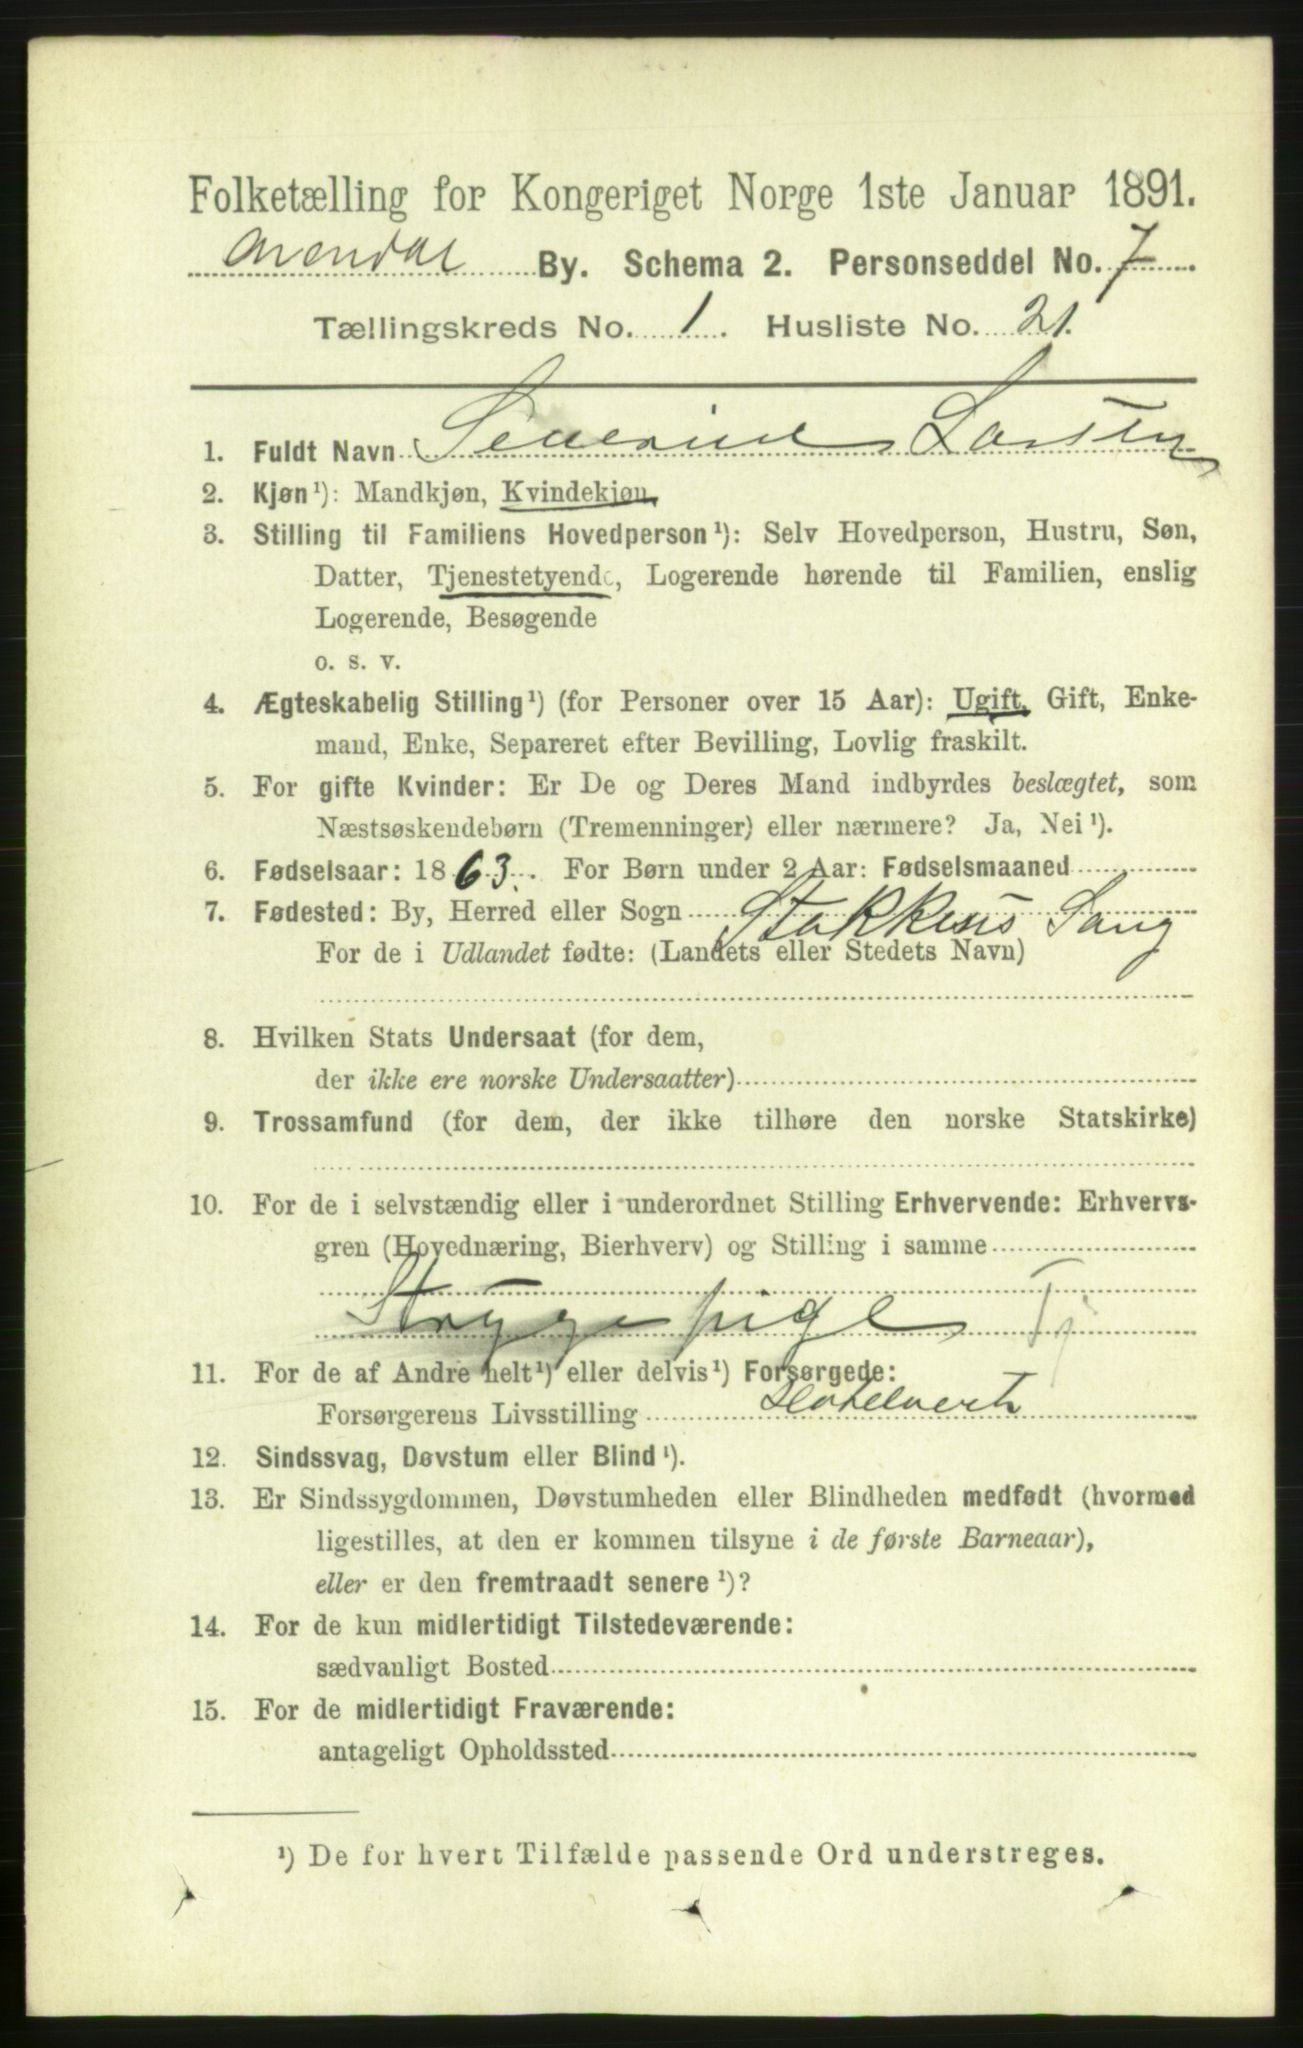 Folketælling for Kongeriget Norge 1ste Januar 1891.
Arendal By. Schema 2. Personseddel No. 7
Tællingskreds No. 1. Husliste No. 21.
1. Fuldt Navn Severine Larsen
2. Kjøn¹): Mandkjøn, Kvindekjøn.
3. Stilling til Familiens Hovedperson¹): Selv Hovedperson, Hustru, Søn,
Datter, Tjenestetyende, Logerende hørende til Familien, enslig
Logerende, Besøgende
o. s. v.
4. Ægteskabelig Stilling¹) (for Personer over 15 Aar): Ugift, Gift, Enke-
mand, Enke, Separeret efter Bevilling, Lovlig fraskilt.
5. For gifte Kvinder: Er De og Deres Mand indbyrdes beslægtet, som
Næstsøskendebørn (Tremenninger) eller nærmere? Ja, Nei¹).
6. Fødselsaar: 1863. For Børn under 2 Aar: Fødselsmaaned
7. Fødested: By, Herred eller Sogn Stokkens Song
For de i Udlandet fødte: (Landets eller Stedets Navn)
8. Hvilken Stats Undersaat (for dem,
der ikke ere norske Undersaatter)
9. Trossamfund (for dem, der ikke tilhøre den norske Statskirke)
10. For de i selvstændig eller i underordnet Stilling Erhvervende: Erhvervs-
gren (Hovednæring, Bierhverv) og Stilling i samme
Strygepige Tj
11. For de af Andre helt¹) eller delvis¹) Forsørgede:
Forsørgerens Livsstilling Hotelvert
12. Sindssvag, Døvstum eller Blind¹).
13. Er Sindssygdommen, Døvstumheden eller Blindheden medfødt (hvormed
ligestilles, at den er kommen tilsyne i de første Barneaar),
eller er den fremtraadt senere¹)?
14. For de kun midlertidigt Tilstedeværende:
sædvanligt Bosted
15. For de midlertidigt Fraværende:
antageligt Opholdssted
¹) De for hvert Tilfælde passende Ord understreges.